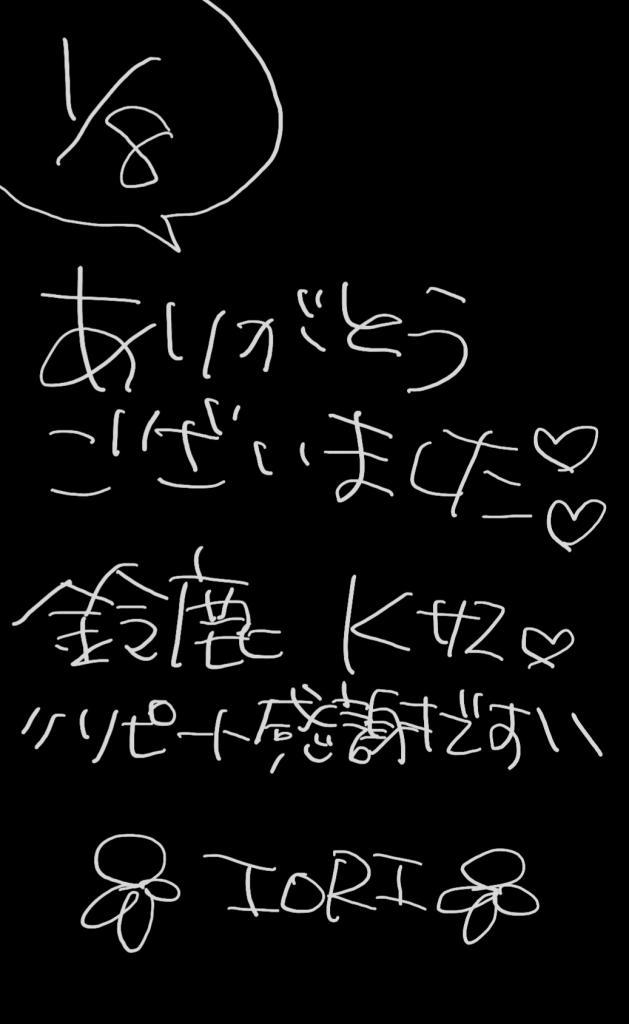 1/8
ありがとう
ございました♡♡
鈴鹿 Kサン♡
\\リピート感謝です//
IORI